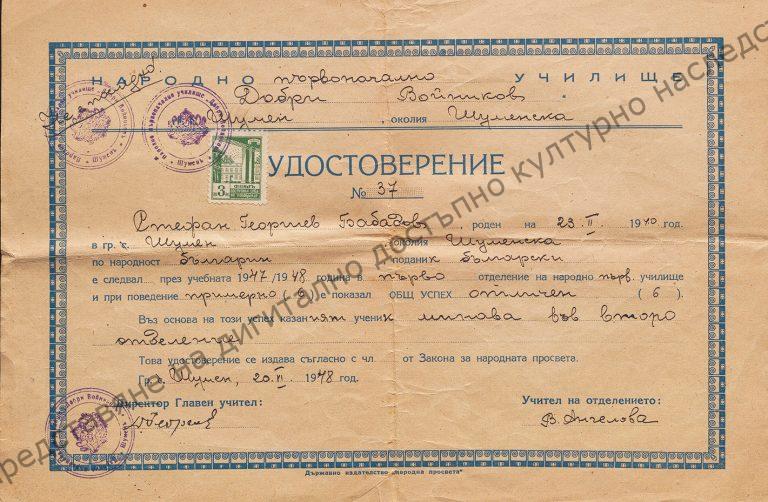 НАРОДНО първоначално УЧИЛИЩЕ
Добри Войников
Шумен, околия Шуменска
УДОСТОВЕРЕНИЕ
№ 37
Стефан Георгиев Бабадов, роден на 23. II. 1940 год.
в гр. с. Шумен околия Шуменска
по народност българин поданик български
е следвал през учебната 1947/1948 година в първо отделение на народно първ. училище
и при поведение примерно (6) е показал ОБЩ УСПЕХ отличен (6).
Въз основа на този успех казаният ученик минава във второ
отделение
Това удостоверение се издава съгласно с чл. от Закона за народната просвета.
Гр. с. Шумен, 20. VI. 1948 год.
Директор Главен учител: Учител на отделението:
В. Ангелова
Държавно издателство „народна просвета“
3 лв.
представяне на дигитално достъпно културно наследс